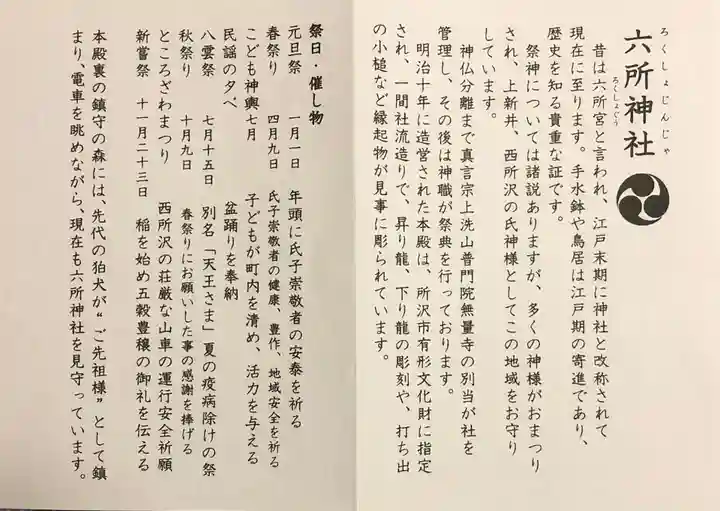 六所神社
ろくしょじんじゃ
昔は六所宮と言われ、江戸末期に神社と改称されて
ろくしょぐう
現在に至ります。手水鉢や鳥居は江戸期の寄進であり、
歴史を知る貴重な証です。
祭神については諸説ありますが、多くの神様がおまつり
され、上新井、西所沢の氏神様としてこの地域をお守り
しています。
神仏分離まで真言宗上洗山普門院無量寺の別当が社を
管理し、その後は神職が祭典を行っております。
明治十年に造営された本殿は、所沢市有形文化財に指定
され、一間社流造りで、昇り龍、下り龍の彫刻や、打ち出
の小槌など縁起物が見事に彫られています。
祭日・催し物
元旦祭 一月一日 年頭に氏子崇敬者の安泰を祈る
春祭り 四月九日 氏子崇敬者の健康、豊作、地域安全を祈る
こども神輿 七月 子どもが町内を清め、活力を与える
民謡の夕べ 盆踊りを奉納
八雲祭 七月十五日 別名「天王さま」夏の疫病除けの祭
秋祭り 十月九日 春祭りにお願いした事の感謝を捧げる
ところざわまつり 西所沢の荘厳な山車の運行安全祈願
新嘗祭 十一月二十三日 稲を始め五穀豊穣の御礼を伝える
本殿裏の鎮守の森には、先代の狛犬が“ご先祖様”として鎮
まり、電車を眺めながら、現在も六所神社を見守っています。